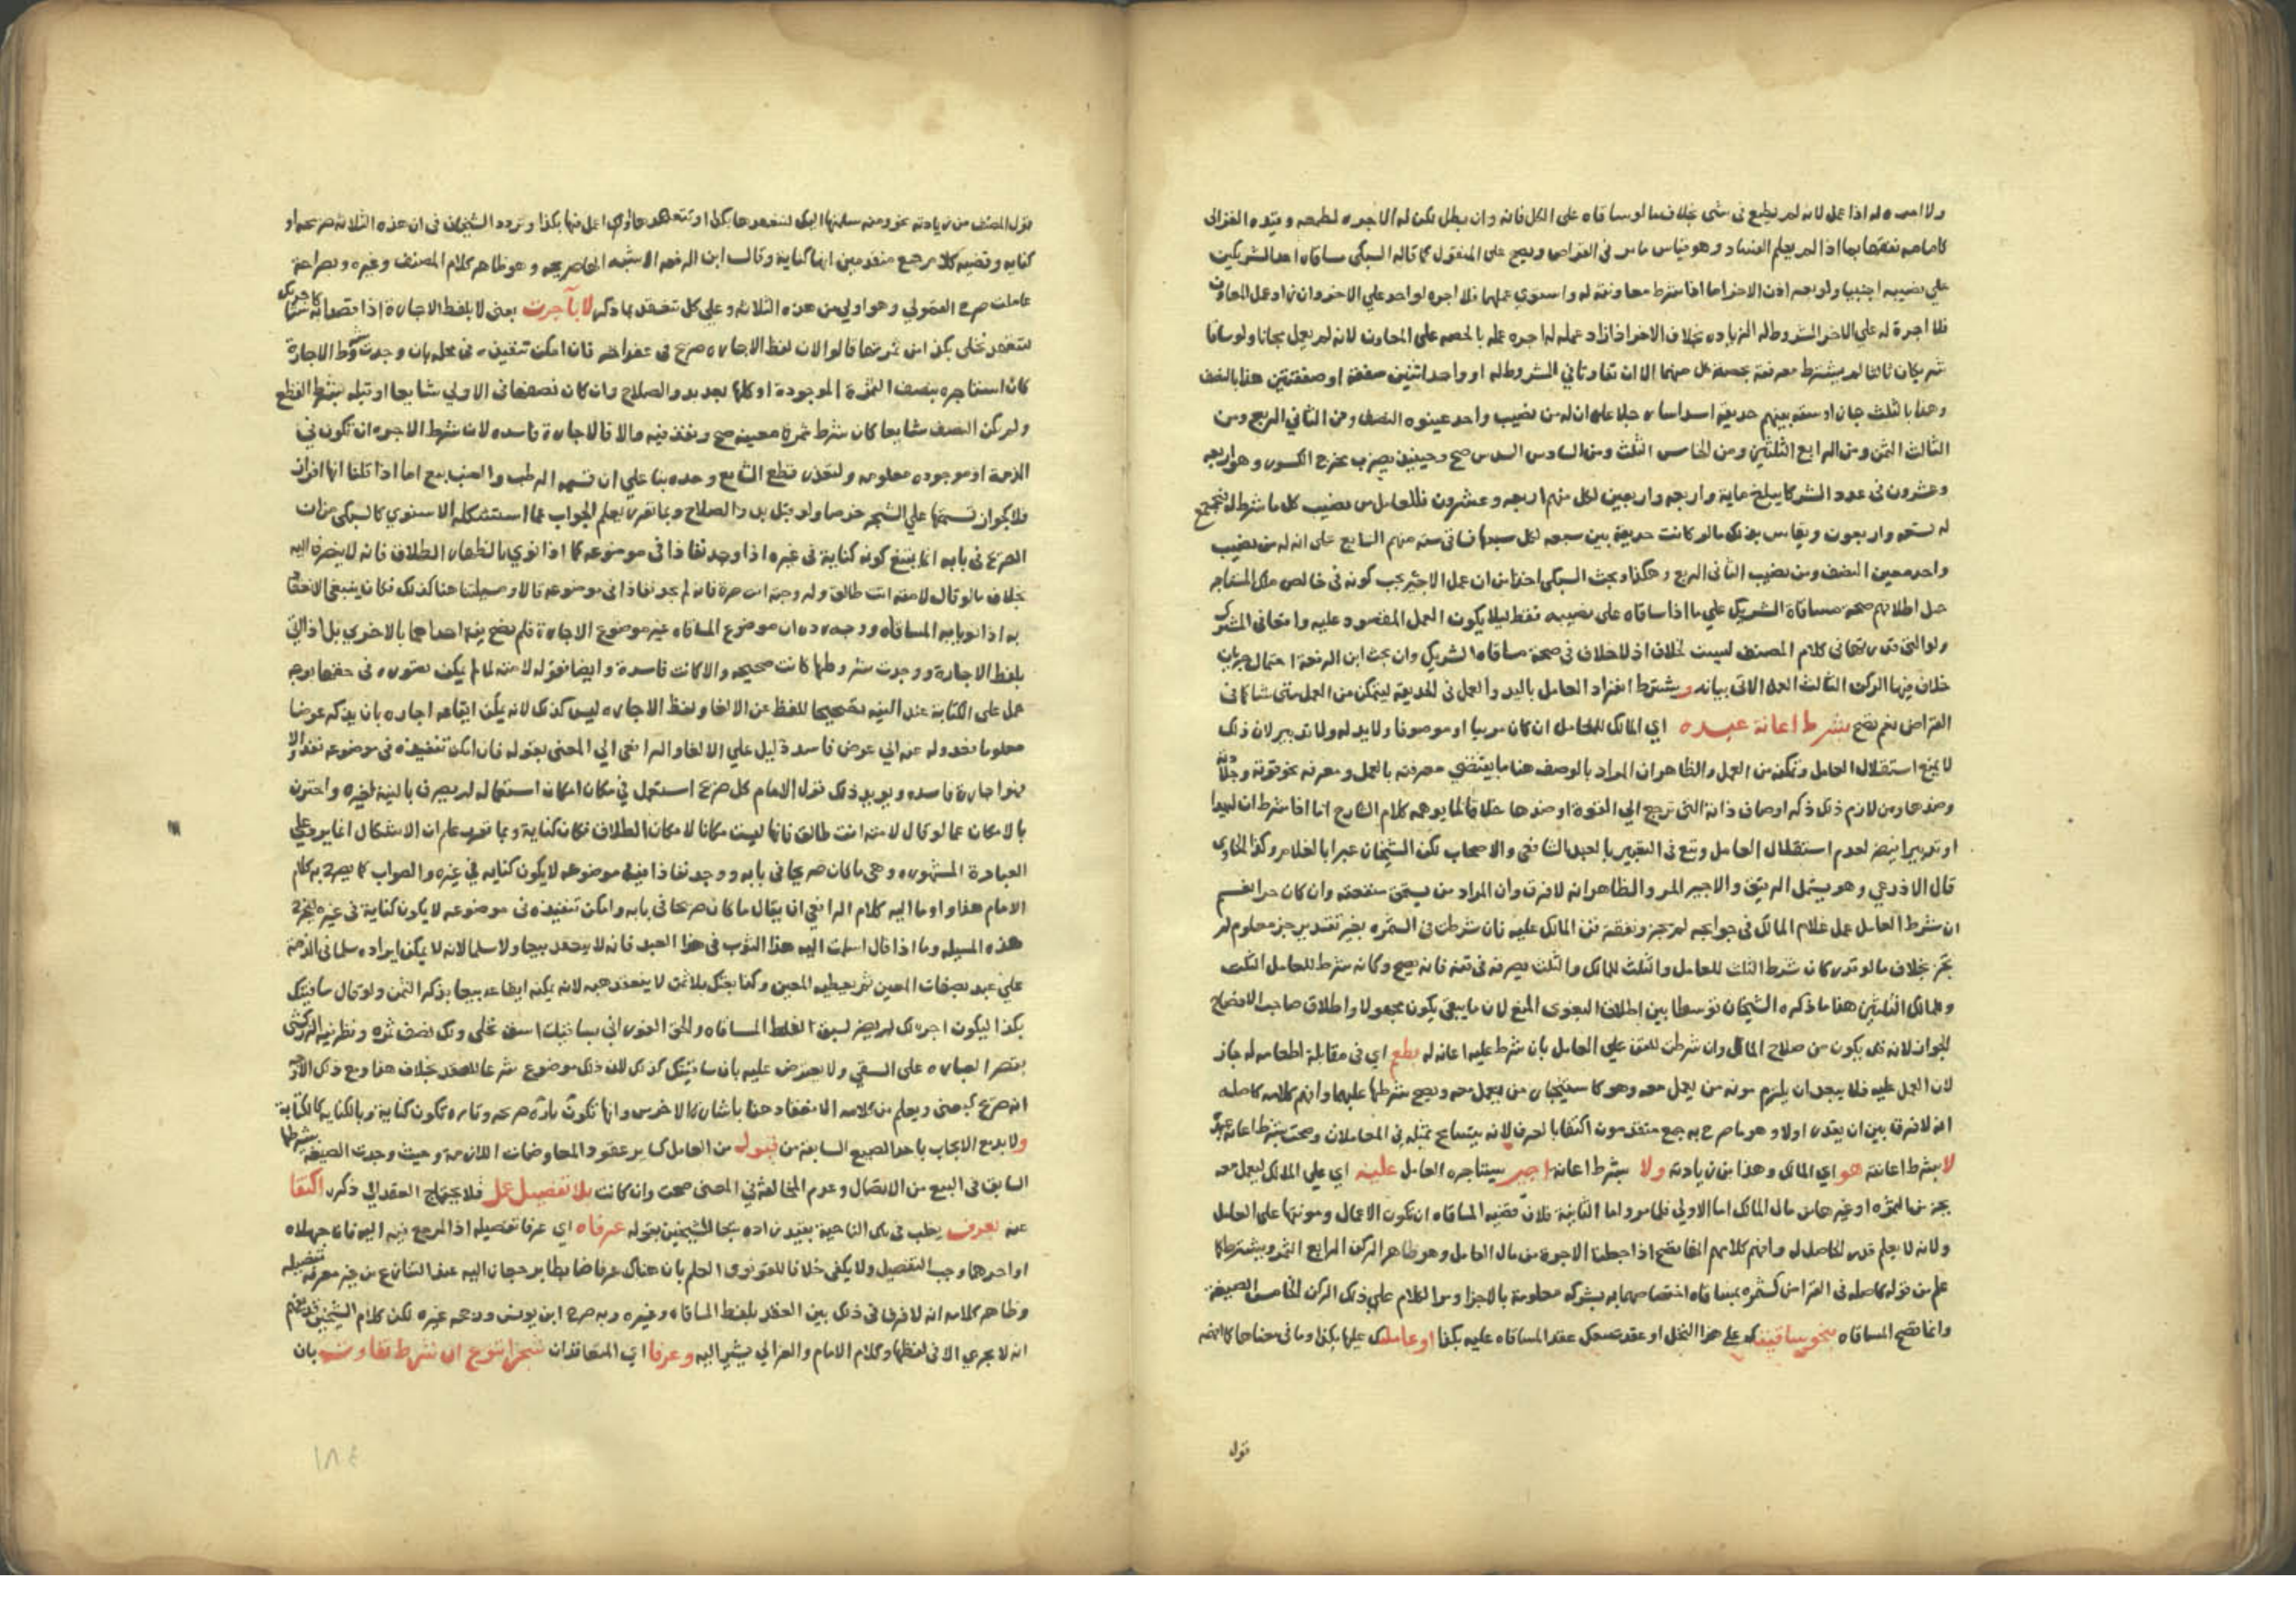 ولا اجره له اذا عمل لانه لم يطمع في شي بخلاف ما لو ساقاه على الكل فانه وان بطل تكن له الاجره لطمعه وقيده الغزالى
كامامه تفقها بما اذا لم يعلم الفساد وهو قياس ما مر فى القراض ويصح على المنقول كما قاله السبكى مساقاة احد الشريكين
على نصيبه اجنبيا ولو بغير اذن الاخر اما اذا شرط معاونته له واستوي عملهما فلا اجره لواحد علي الاخر وان زاد عمل المعاون
فلا اجرة له علي الاخر المشروط له الزياده بخلاف الاخر اذا زاد عمله له اجره عمله بالحصه على المعاون لانه لم يعمل مجانا ولو ساقا
شريكان ثالثا لم يشترط معرفته بحصة كل منهما الا ان تفاوتا في المشروط له او واحد اثنين صفقة او صفقتين هذا بالنصف
وهذا بالثلث جاز او ستة بينهم حديقة اسداسا رجلا على ان له من نصيب واحد عينوه النصف ومن الثاني الربع ومن
الثالث الثمن ومن الرابع الثلثين ومن الخامس الثلث ومن السادس السدس صح وحينئذ يضرب مخرج الكسور وهو اربعه
وعشرون في عدد الشركا يبلغ ماية واربعه واربعين لكل منهم اربعه وعشرون فللعامل من نصيب كل ما شرط له فيجتمع
له تسعه واربعون ويقاس بذلك ما لو كانت حديقة بين سبعه لكل سبعها فساقى سته منهم السابع على ان له من نصيب
واحد معين النصف ومن نصيب الثانى الربع وهكذا وبحث السبكى اخذا من ان عمل الاجير يجب كونه في خالص ملك المستاجر
حمل اطلاقهم صحة مساقاة الشريك علي ما اذا ساقاه على نصيبه فقط ليلا يكون العمل المقصود عليه وامتحانى المشترك
ولو التى في كلام المصنف ليست لخلاف اذ لا خلاف في صحة مساقاة الشريك وان بحث ابن الرفعة احتمال جريان
خلاف فيها الركن الثالث العمل الاتى بيانه ويشترط انفراد العامل باليد والعمل فى الحديقة ليتمكن من العمل متى شا كما فى
القراض نعم تصح بشرط اعانة عبده اي المالك للعامل ان كان مرييا او موصوفا ولا يد له ولا تدبير لان ذلك
لا يمنع استقلال العامل وتمكنه من العمل والظاهر ان المراد بالوصف هنا ما يقتضي معرفته بالعمل ومعرفه نحو قوته وجلده
وضدها ومن لازم ذلك ذكر اوصاف ذاته التى ترجع الي القوة او ضدها خلافا لما يوهمه كلام الشارح اما اذا شرط ان له يدا
او تدبيرا فيضر لعدم استقلال العامل وتبع في التعبير بالعبد الشافعى والاصحاب لكن الشيخان عبرا بالغلام وكذا الحاوى
قال الاذرعي وهو يشمل الرقيق والاجير الحر والظاهر انه لا فرق وان المراد من يستحق منفعته وان كان حرا نعم
ان شرط العامل عمل غلام المالك في حوايجه لم يجز ونفقة قن المالك عليه فان شرطت فى الثمره بغير تقدير جز معلوم لم
يجز بخلاف ما لو قدر كان شرط الثلث للعامل والثلث للمالك والثلث يصرفه في قنه فانه يصح وكانه شرط للعامل الثلث
وللمالك الثلثين هذا ما ذكره الشيخان توسطا بين اطلاق البغوى المنع لان ما يبقى يكون مجهولا واطلاق صاحب الافصاح
الجواز لانه قد يكون من صلاح المال وان شرطت للقن علي العامل بان شرط عليه اعانة له بطعم اي في مقابلة اطعامه له جاز
لان العمل عليه فلا يبعد ان يلزم مونه من يعمل معه وهو كاستيجار من يعمل معه ويصح شرطها عليهما وافهم كلامه كاصله
انه لا فرق بين ان يقدر اولا وهو ما صرح به جمع متقدمون اكتفا بالعرف لانه يتسامح بمثله في المعاملات وصحت بشرط اعانة عبده
لا بشرط اعانة هو اي المالك وهذا من زيادته ولا بشرط اعانة اجير يستاجره العامل عليه اي علي المالك ليعمل معه
بجز من الثمره او غيرها من مال المالك اما الاولى فلما مر واما الثانية فلان قضيه المساقاه ان تكون الاعمال ومونتها على العامل
ولانه لا يعلم قدر الحاصل له وافهم كلامهم انها تصح اذا جعلنا الاجره من مال العامل وهو ظاهر الركن الرابع الثمر ويشترط كما
علم من قوله كاصله فى القراض كثمره بمساقاه اختصاصهما به بشركه معلومة بالاجزا ومر الكلام علي ذلك الركن الخامس الصيغة
وانما تصح المساقاه بنحو ساقيتك على هذا النخل او عقدت معك عقد المساقاه عليه بكذا او عاملتك عليها بكذا وما في معناها كما افهمه
قول
قول المصنف من زيادته نحو ومنه سلمتها اليك لتتعهدها بكذا او تتعهد حايطى او اعمل فيها بكذا وتردد الشيخان في ان هذه الثلاثه صريحه او
كنايه وقضيه كلام جمع متقدمين انها كناية وقال ابن الرفعه الاشبه انها صريحه وهو ظاهر كلام المصنف وغيره وبصراحة
عاملتك صرح القمولي وهو اولي من هذه الثلاثه وعلي كل تنعقد بما ذكر لا بآجرت يعنى لا بلفظ الاجاره اذا قصدا به كاجرتك شيا
لتتعهد نخلى بكذا من ثمرتها قالوا لان لفظ الاجاره صريح في عقد اخر فان امكن تنفيذه في محله بان وجدت شروط الاجارة
كان استاجره بنصف الثمرة الموجودة او كلها بعد بدو الصلاح وان كان نصفها فى الاولي شايعا او قبله بشرط القطع
ولم يكن النصف شايعا كان شرط ثمرة معينة صح ونفذ فيه والا فالاجارة فاسده لان شرط الاجره ان تكون في
الذمة او موجوده معلومه ولتعذر قطع الشايع وحده بنا علي ان قسمه الرطب والعنب بيع اما اذا قلنا انها افراز
فلا يجوز قسمتها علي الشجر خرصا ولو قبل بدو الصلاح وبما تقرر يعلم الجواب عما استشكله الاسنوي كالسبكى من ان
الصريح في بابه انما يمتنع كونه كناية في غيره اذا وجد نفاذا في موضوعه كما اذا نوي بالظهار الطلاق فانه لا ينصرف اليه
بخلاف ما لو قال لامته انت طالق ولزوجته انت حرة فانه لم يجد نفاذا في موضوعه قالا ومسيلتنا هنا كذلك فكان ينبغى الانعقاد
به اذا نويا به المساقاه ووجه رده ان موضوع المساقاه غير موضوع الاجارة فلم تصح نية احداهما بالاخري بل اذا اتى
بلفظ الاجارة ووجدت شروطها كانت صحيحه والا كانت فاسدة وايضا فقوله لامته لما لم يكن متصوره في حقها وجه
حمل على الكناية عند النيه تصحيحا للفظ عن الالغا ولفظ الاجاره ليس كذلك لانه يمكن ايقاعه اجاره بان يذكر عوضا
معلوما فعدوله عنه الي عوض فاسد دليل علي الالغا والرافعى الي المعنى بقوله فان امكن تنفيذه في موضوعه نفذ والا
فهو اجارة فاسده ويويد ذلك قول الامام كل صريح استعمل في مكان امكان استعماله لم يصرف بالنية لغيره واحترز
بالامكان عما لو قال لامته انت طالق فانها ليست مكانا لامكان الطلاق فكان كناية وبما تقرر علم ان الاشكال انما يرد على
العبارة المشهوره وهي ما كان صريحا فى بابه ووجد نفاذا في موضوعه لا يكون كنايه في غيره والصواب كما يصرح به كلام
الامام هذا واوما اليه كلام الرافعي ان يقال ما كان صريحا في بابه وامكن تنفيذه في موضوعه لا يكون كناية في غيره ليخرج
هذه المسيله وما اذا قال اسلمت اليك هذا الثوب في هذا العبد فانه لا ينعقد بيعا ولا سلما لانه لا يمكن ايراده سلما في الذمة
علي عبد بصفات المعين ثم يعطيه المعين وكذا بعتك بلا ثمن لا ينعقد هبه لانه يمكنه ايقاعه بيعا بذكر الثمن ولو قال ساقيتك
بكذا ليكون اجره لك لم يضر لسبق لفظ المساقاه والحق الغزالي بساقيتك اسق نخلي ولك نصف ثمره ونظر فيه الزركشى
بقصر العباره على السقي ولا يعترض عليه بان ساقيتك كذلك لان ذلك موضوع شرعا للعقد بخلاف هذا ومع ذلك الاوجه
انه صريح كبعنى ويعلم من كلامه الانعقاد هنا باشارة الاخرس وانها تكون تارة صريحه وتاره تكون كناية وبالكنايه كالكتابة
ولا بد مع الايجاب باحد الصيغ السابقه من قبول من العامل كساير عقود المعاوضات اللازمه وحيث وجدت الصيغة بشرطها
السابق فى البيع من الاتصال وعدم المخالفة في المعنى صحت وان كانت بلا تفصيل عمل فلا يحتاج العقد الي ذكره اكتفا
عنه بعرف يغلب في تلك الناحية بقيد زاده تبعا للشيخين بقوله عرفاه اي عرفا تفصيله اذ المرجع فيه اليه فان جهلاه
او احدهما وجب التفصيل ولا يكفى خلافا للقونوى العلم بان هناك عرفا ضابطا يرجعان اليه عند التنازع من غير معرفة تفصيله
وظاهر كلامه انه لا فرق في ذلك بين العقد بلفظ المساقاه وغيره وبه صرح ابن يونس ورجحه غيره لكن كلام الشيخين قد يفهم
انه لا يجري الا فى لفظها وكلام الامام والغزالي يشير اليه وعرفا اي المتعاقدان شجرا تنوع ان شرط تفاوت بان
١٨٤